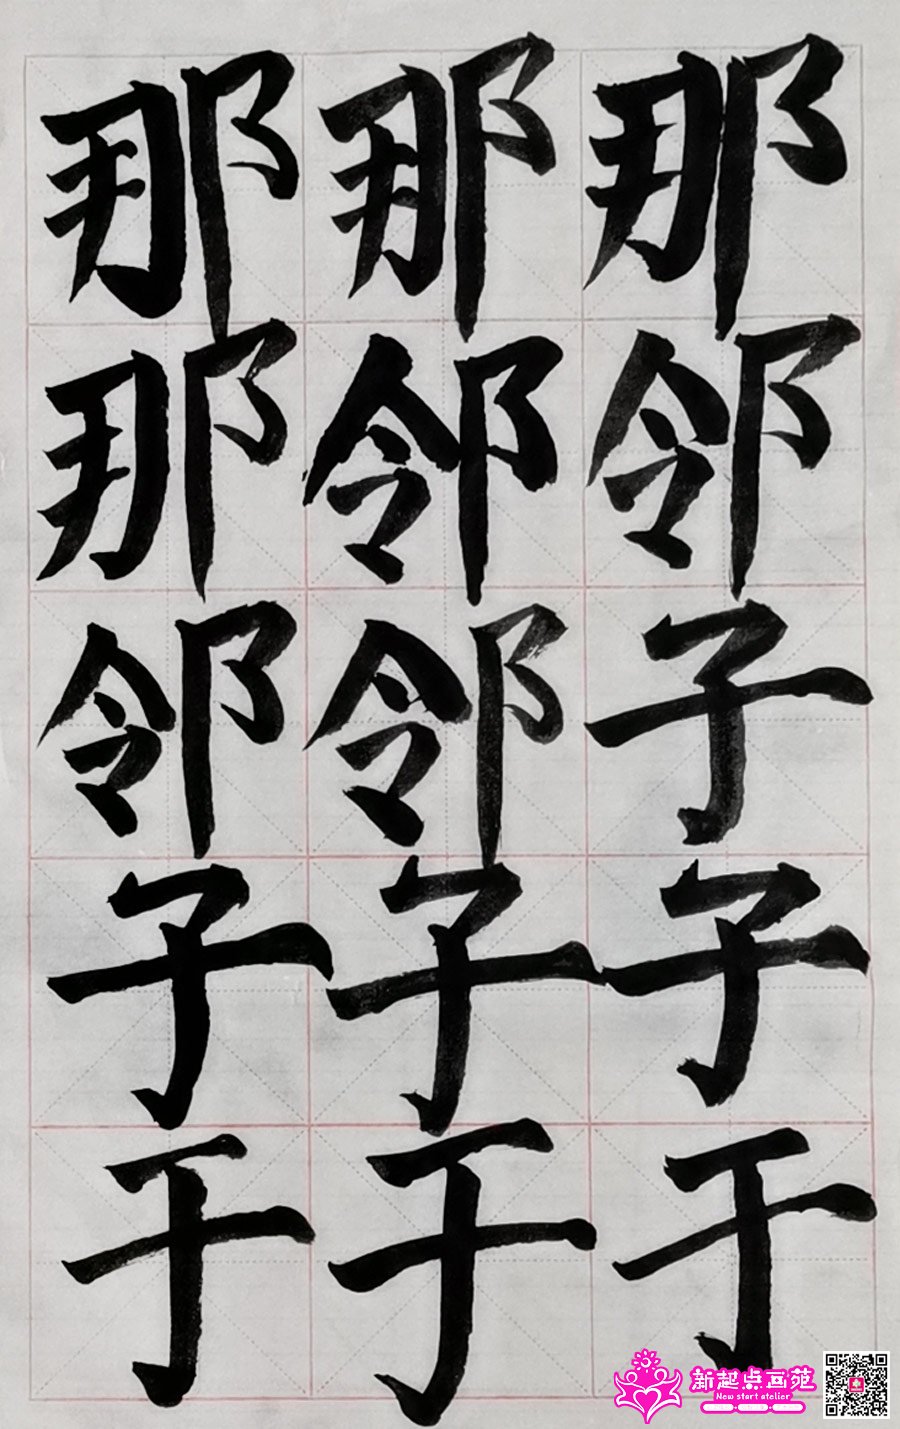 那那那
那邻邻
邻邻子
子子子
于于于
新起点画苑
New start atelier